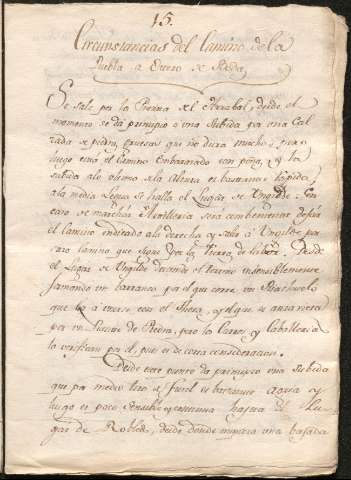 15.
Circunstancias del Camino de la
Puebla a Otero de
Se sale por la del Arrabal, desde el
momento se da principio a una Subida por una Cal
zada de piedra gruesa que no dura mucho, pero
luego está el Camino embarazado con peña, y la
subida alo ultimo de la Altura es bastante rapida,
a la media Legua se halla el Lugar de Ungilde. En
caso de marchar Artilleria sera combeniente dejar
el Camino indicado ala derecha y salir á Ungilde por
otro Camino que sigue por la Desde
el Lugar de Ungilde deciende el terreno insensiblemente
formando un barranco por el que corre un Riachuelo
que ba á unirse con el y el que se atraviesa
por un Puente de Piedra, pero los Carros y Caballeria
lo verifican por el, pues es de corta consideracion.
Desde este punto da principio una Subida
que por medio tiro de Fusil es bastante agria y
luego es poco sensible y continua hasta el Lu
gar de Robledo, desde donde empieza una bajada